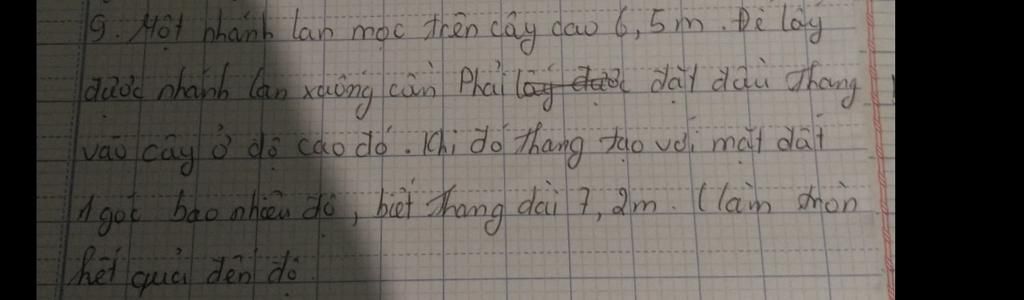 9. Một nhánh lan mọc trên cây cao 6,5m. Để lấy
được nhánh lan xuống cần Phải lấy được đặt đầu thang
vào cây ở độ cao đó. Khi đó thang tạo với mặt đất
1 góc bao nhiêu độ, biết thang dài 7,2m. (làm tròn
kết quả đến độ